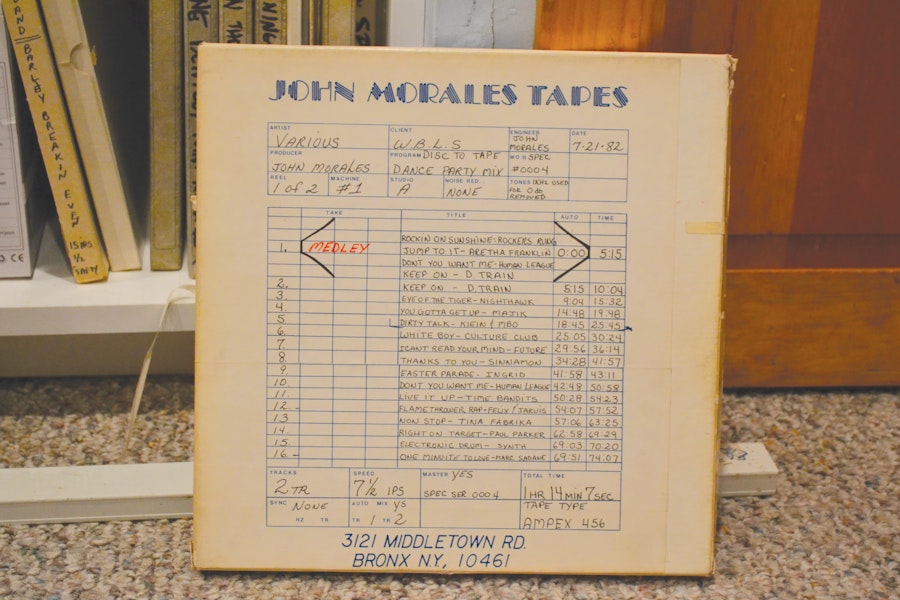 BAND BARLBY BREAKIN EVEN
15 IPS
1/2
SAFTY
JOHN MORALES TAPES
ARTIST
VARIOUS
CLIENT
W.B.L.S
ENGINEER
JOHN
MORALES
DATE
7-21-82
PRODUCER
JOHN MORALES
PROGRAM DISC TO TAPE
DANCE PARTY MIX
W.O.# SPEC
#0004
REEL
1 of 2
MACHINE
#1
STUDIO
A
NOISE RED...
NONE
TONES 1KHz USED
FOR 0 db
REMOVED
TAKE TITLE AUTO TIME
1. MEDLEY
ROCKIN ON SUNSHINE-ROCKERS RVNG
JUMP TO IT-ARETHA FRANKLIN 0:00 5:15
DONT YOU WANT ME-HUMAN LEAGUE
KEEP ON - D TRAIN
2. KEEP ON - D. TRAIN 5:15 10:04
3. EYE OF THE TIGER-NIGHTHAWK 9:04 15:32
4. YOU GOTTA GET UP - MAJIK 14:48 19:48
5 DIRTY TALK-KLEIN & MBO 18:45 25:45
6. WHITE BOY-CULTURE CLUB 25:05 30:24
7. I CANT READ YOUR MIND-FUTURE 29:56 36:14
8 THANKS TO YOU-SINNAMON 34:28 41:57
9. EASTER PARADE-INGRID 41:58 43:11
10. DONT YOU WANT ME-HUMAN LEAGUE 42:48 50:58
11. LIVE IT UP-TIME BANDITS 50:28 54:23
12.- FLAMETHROWER RAP-FELIX & JARVIS 54:07 57:52
13 NON STOP-TINA FABRIKA 57:06 63:25
14. RIGHT ON TARGET-PAUL PARKER 62:58 69:29
15. ELECTRONIC DRUM-SYNTH 69:03 70:20
16.- ONE MINNUITE TO LOVE-MARC SADANE 69:51 74:07
TRACKS
2 TR
SPEED
7 1/2 IPS
MASTER YES
SPEC SER 0004
TOTAL TIME
1 HR 14 MIN 7 SEC
SYNC NONE
HZ TR
AUTO MIX YS
TR 1 TR 2
TAPE TYPE
AMPEX 456
3121 MIDDLETOWN RD.
BRONX N.Y, 10461